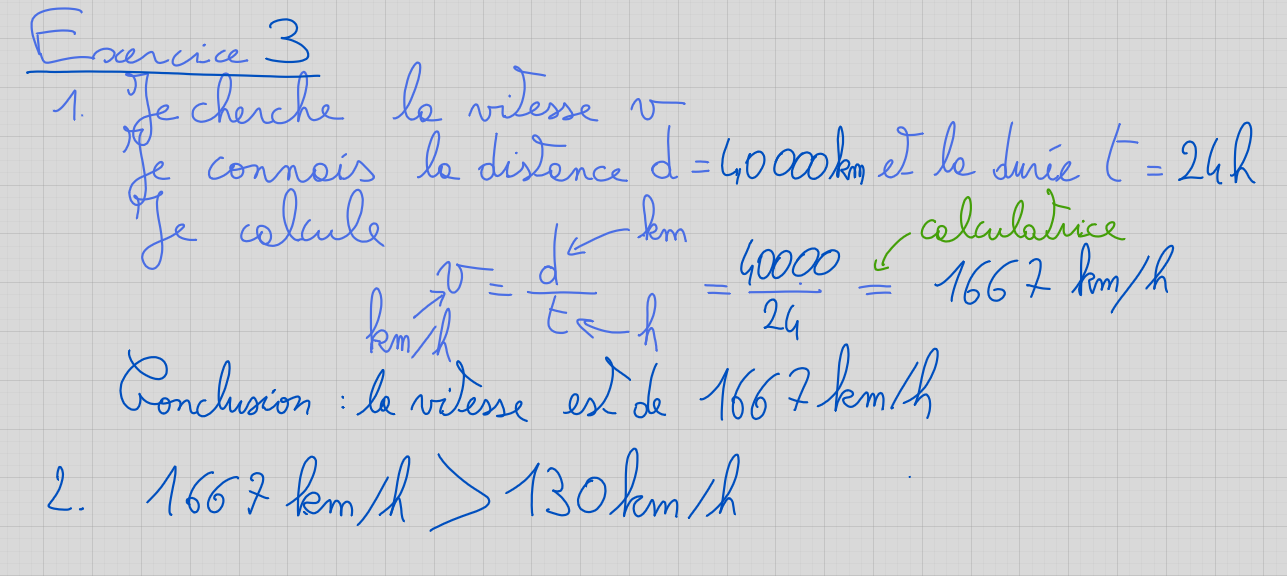 Exercice 3
1. Je cherche la vitesse v
Je connais la distance d = 40 000 km et la durée t = 24 h
Je calcule
calculatrice
km
v = d / t = 40000 / 24 = 1667 km/h
km/h
h
Conclusion : la vitesse est de 1667 km/h
2. 1667 km/h > 130 km/h